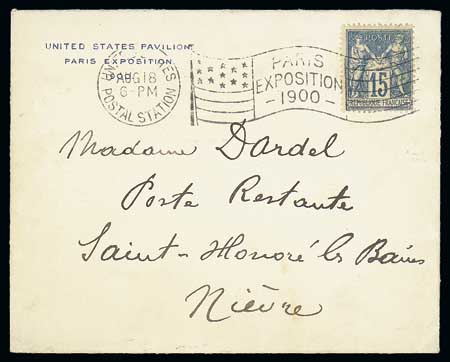 UNITED STATES PAVILION
PARIS EXPOSITION.
UNITED STATES
AUG 18
6-PM
POSTAL STATION
PARIS
EXPOSITION
-1900-
POSTE
15
REPUBLIQUE FRANCAISE
Madame Dardel
Poste Restante
Saint-Honoré les Bains
Nièvre